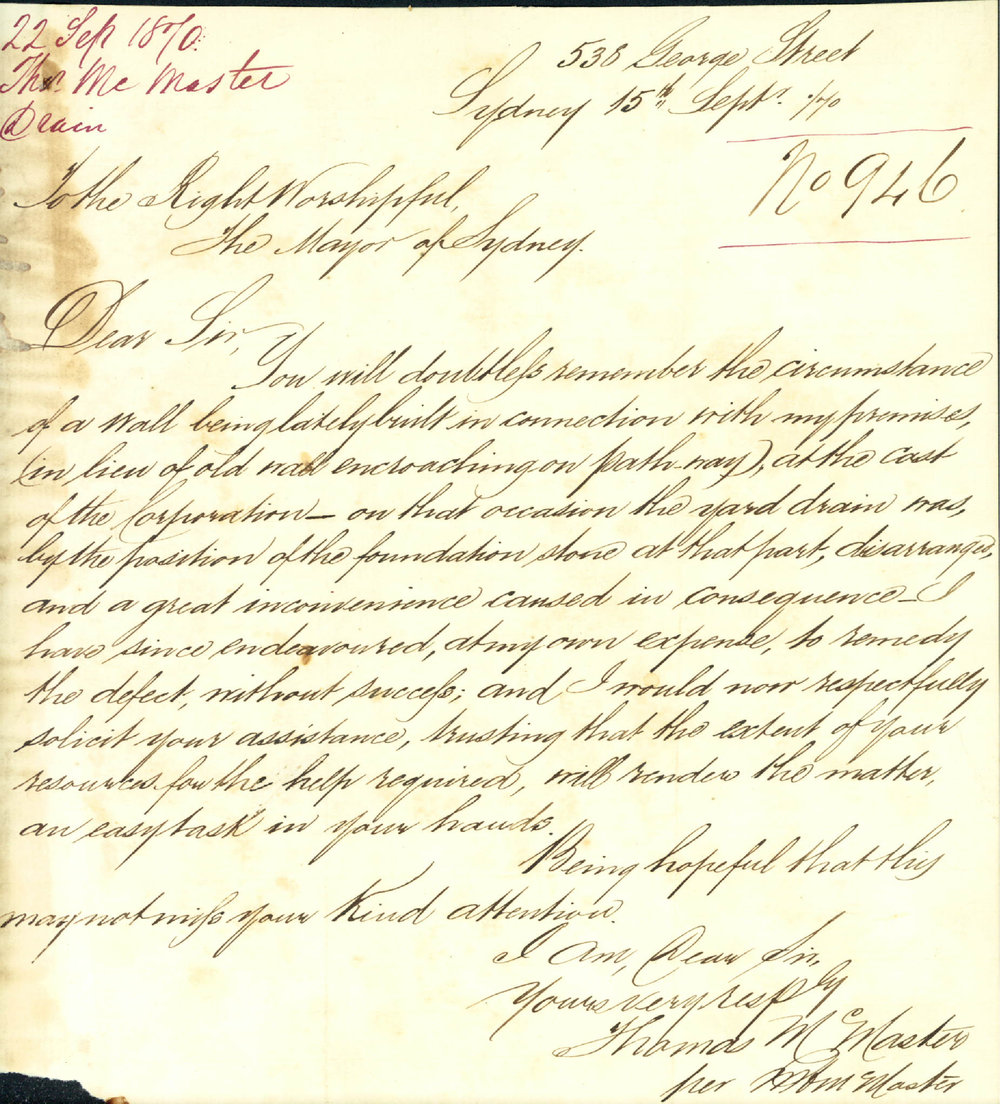 22 Sep 1870.
Thos. Mc Master
Drain
538 George Street
Sydney 15th Septr. /70
No 946
To the Right Worshipful,
The Mayor of Sydney.
Dear Sir,
You will doubtless remember the circumstance
of a wall being lately built in connection with my premises,
(in lieu of old wall encroaching on path-way), at the cost
of the Corporation — on that occasion the yard drain was,
by the position of the foundation stone at that part, disarranged,
and a great inconvenience caused in consequence — I
have since endeavoured, at my own expense, to remedy
the defect, without success; and I would now respectfully
solicit your assistance, trusting that the extent of your
resources for the help required, will render the matter,
an easy task in your hands.
Being hopeful that this
may not miss your kind attention.
I am, Dear Sir,
Yours very resply
Thomas McMaster
per McMaster